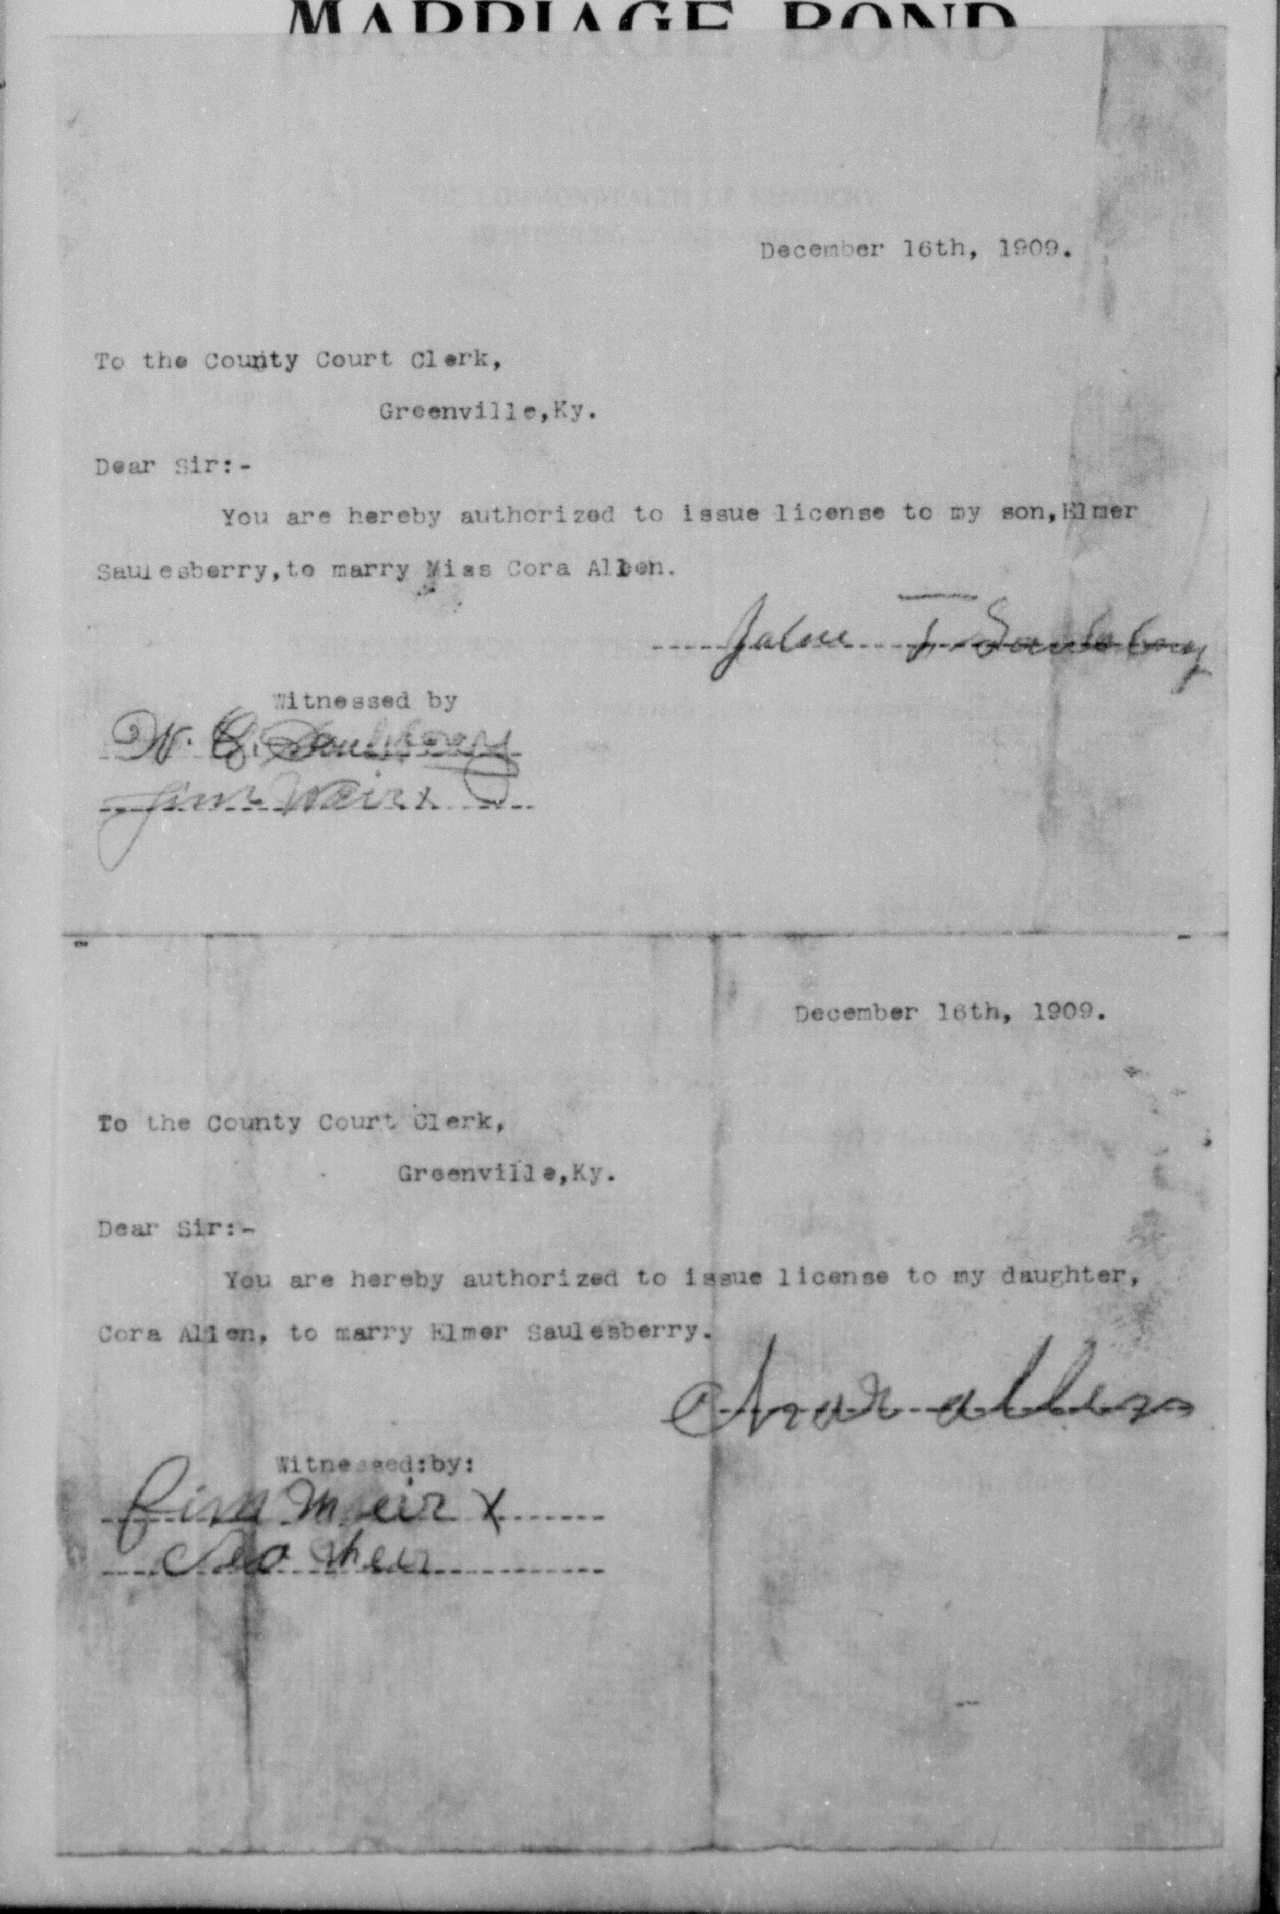 MARRIAGE BOND
December 16th, 1909.
To the County Court Clerk,
Greenville,Ky.
Dear Sir:-
You are hereby authorized to issue license to my son,Elmer
Saulesberry,to marry Miss Cora Allen.
T
Witnessed by
W.
Jim Weir x
December 16th, 1909.
To the County Court Clerk,
Greenville,Ky.
Dear Sir:-
You are hereby authorized to issue license to my daughter,
Cora Allen, to marry Elmer Saulesberry.
allen
Witnessed:by:
Jim Weir x
Geo